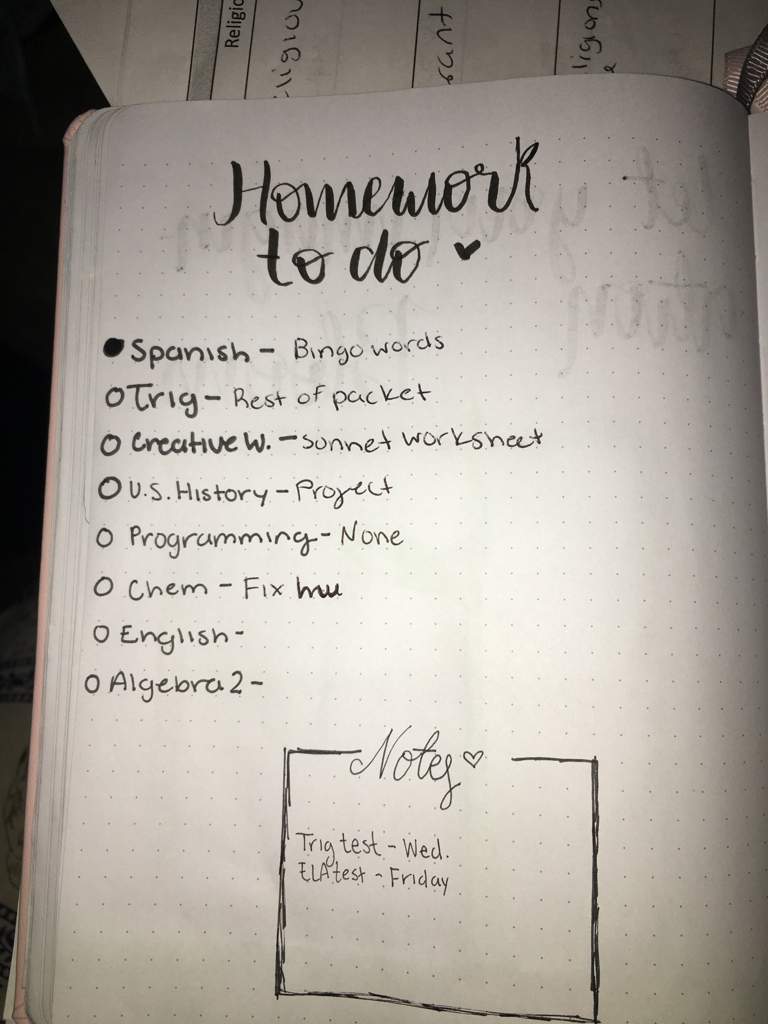 Religio
eligiou
rant
ligions
Homework
to do
Spanish - Bingo words
Trig - Rest of packet
Creative W. - Sonnet worksheet
U.S. History - Project
Programming - None
Chem - Fix hw
English -
Algebra 2 -
Notes
Trig test - Wed.
ELA test - Friday